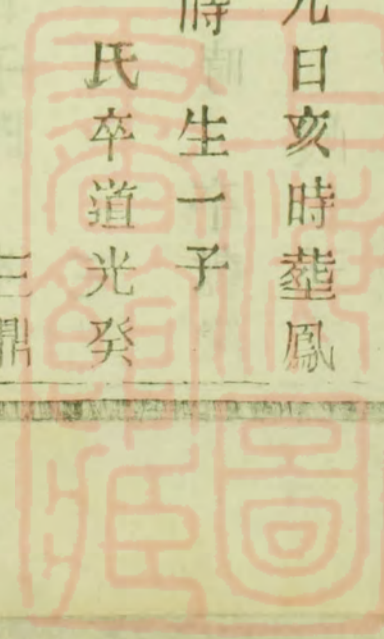 日亥時塟鳳
時生一子
氏卒道光癸
三鼎